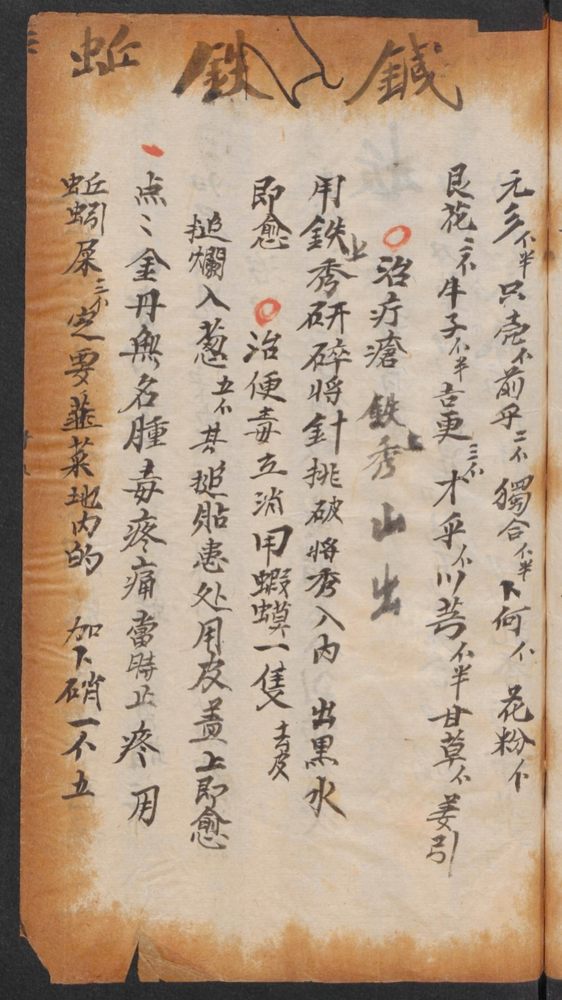 鍼 鉄 蚯
元参 不半 只壳 不 前乎 二不 獨合 不半 下何 不 花粉 不
艮花 三不 牛子 不半 吉更 三不 木乎 不 川芎 不半 甘草 不 姜引
治疔瘡 鉄上秀 山出
用鉄上秀研碎將針挑破將秀入内 出黑水
即愈 治便毒立消用蝦蟆一隻 去皮
搥爛入葱 五不 共搥貼患处用皮盖上即愈
点〻金丹無名腫毒疼痛當時止疼 用
蚯蚓屎 三不 定要韮菜地内的 加下硝一不五